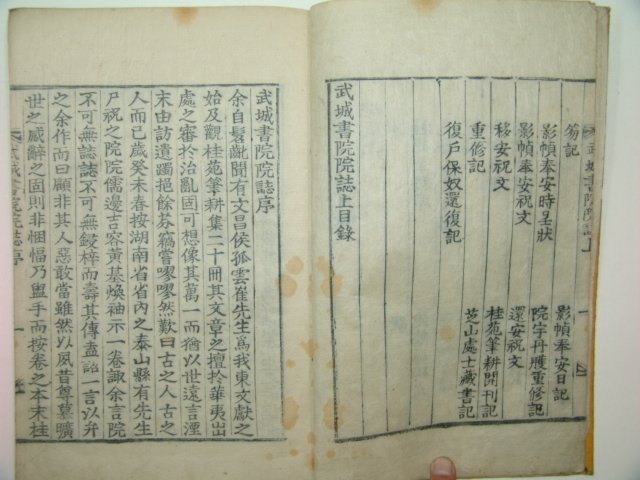 武城書院院誌上
笏記 影幀奉安日記
影幀奉安時呈狀 院宇丹雘重修記
影幀奉安祝文 還安祝文
移安祝文 桂苑筆耕開刊記
重修記 山處士藏書記
復戶保奴還復記
武城書院院誌上目錄
武城書院院誌序
余自髫齔聞有文昌侯孤雲崔先生爲我東文獻之
始及觀桂苑筆耕集二十冊其文章之擅於華夷出
處之審於治亂固可想像其萬一而猶以世遠言湮
末由訪遺躅挹餘芬竊嘗嘐嘐然歎曰古之人古之
人而已歲癸未春按湖南省省內之泰山縣有先生
尸祝之院院儒邊吉容黃基煥袖示一卷諏余言院
不可無誌誌不可無鋟梓而壽其傳盍詒一言以弁
之余作而曰顧非其人惡敢當雖然以夙昔尊慕曠
世之感辭之固則非悃愊乃盥手而按卷之本末桂
武城書院院誌序 一